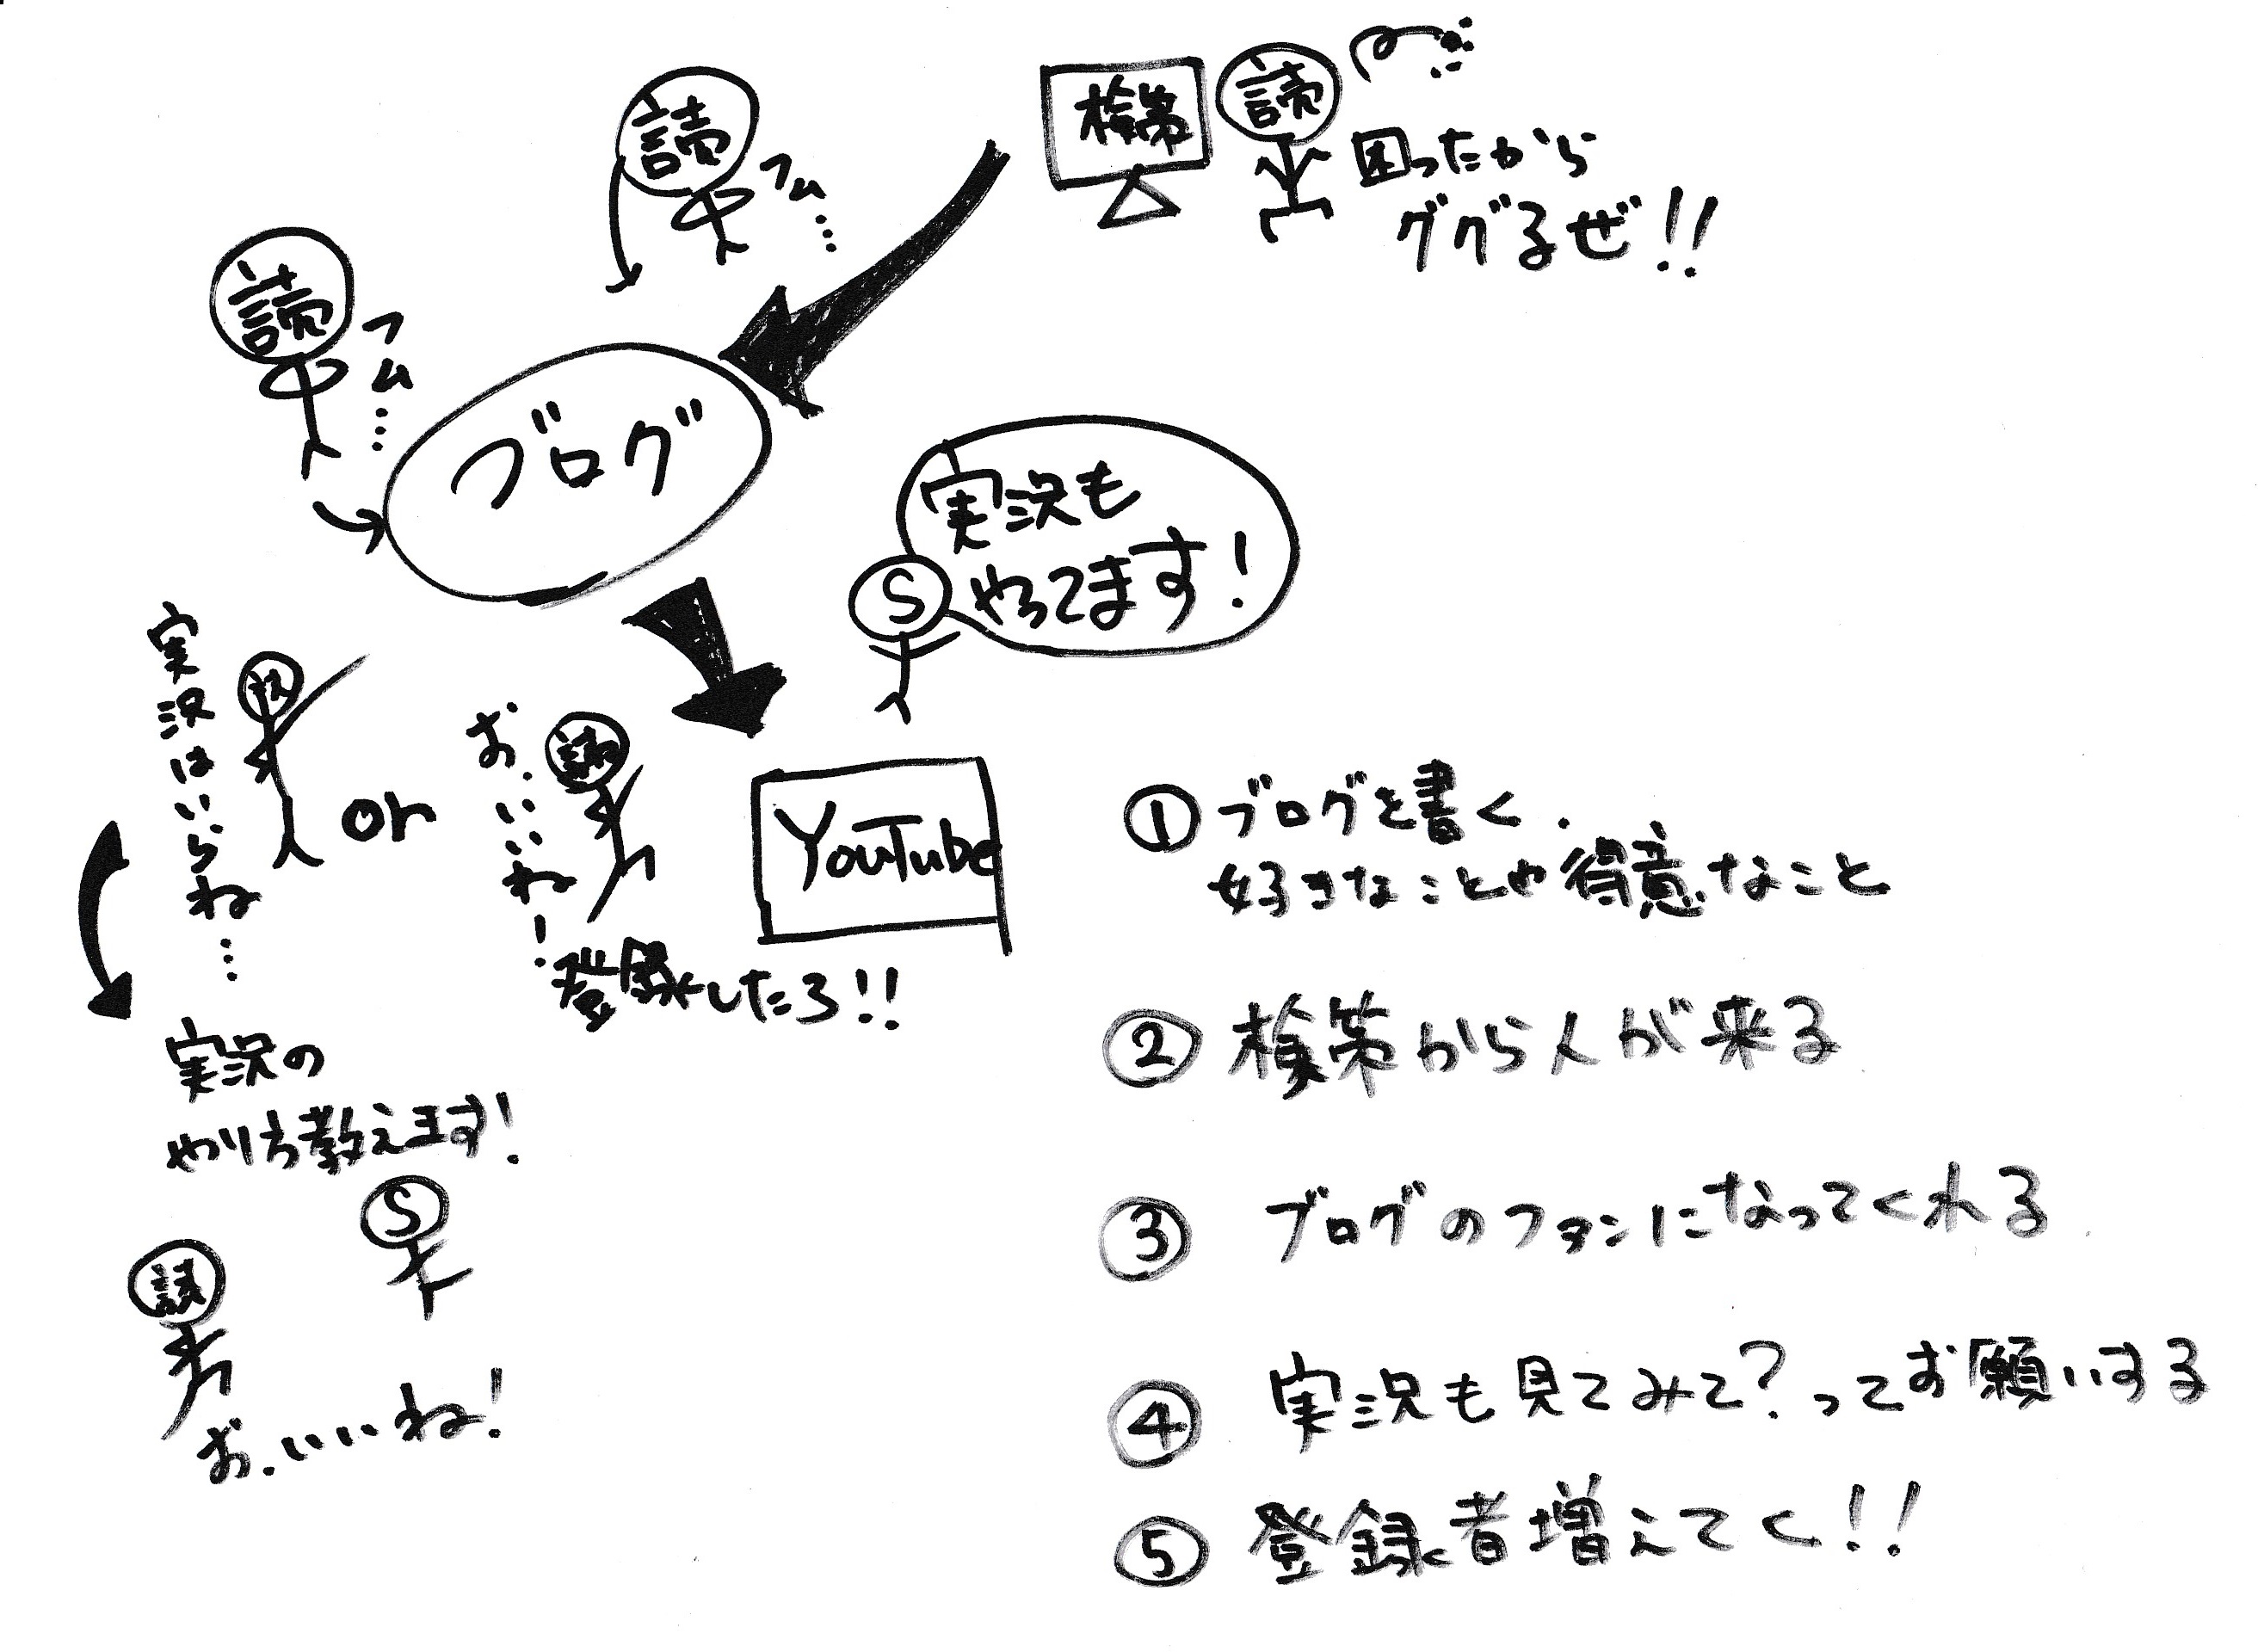 検索
読
困ったから
ググるぜ!!
読
フム…
読
フム…
ブログ
実況も
やってます!
S
実況はいらね…
or
お、いいね!
読
登録したろ!!
YouTube
実況の
やり方教えます!
S
読
お、いいね!
①ブログを書く.
好きなことや得意なこと
②検索から人が来る
③ブログのファンになってくれる
④実況も見てみて?ってお願いする
⑤登録者増えてく!!